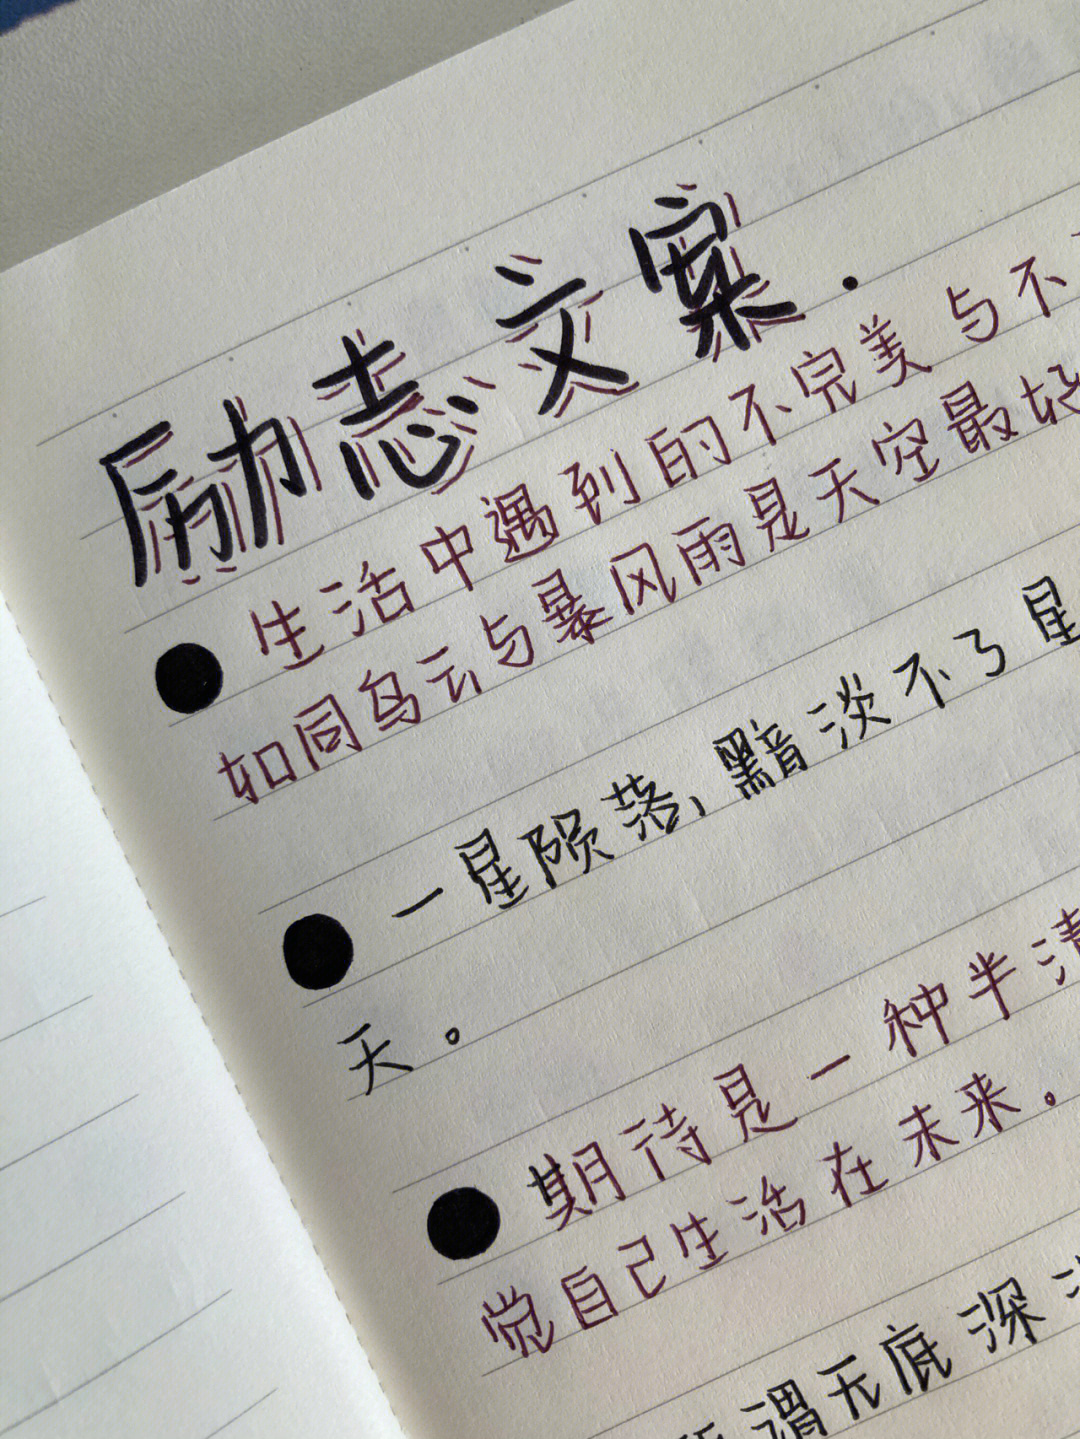 励志文案.
生活中遇到的不完美与不
如同乌云与暴风雨是天空最好
一星陨落,黯淡不了星
天。
期待是一种半清
觉自己生活在未来。
谓无底深